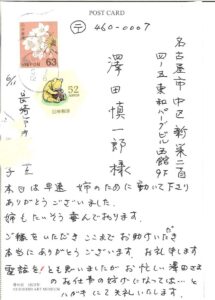 POST CARD
〒 460-0007
名古屋市中区新栄二百
四ノ五東和パークビル函館9F
澤田慎一郎様
63
NIPPON
52
日本郵便
6/11
長崎市
子 正
本日は早速 姉のために動いて下さり
ありがとうございました。
姉もたいそう喜んでおります。
ご縁をいただき ここまでお助けいただき
本当にありがとうございます。お礼申します
電話を とも思いましたが お忙しい澤田さま
のお仕事の妨げになっては…と
ハガキにて失礼いたします